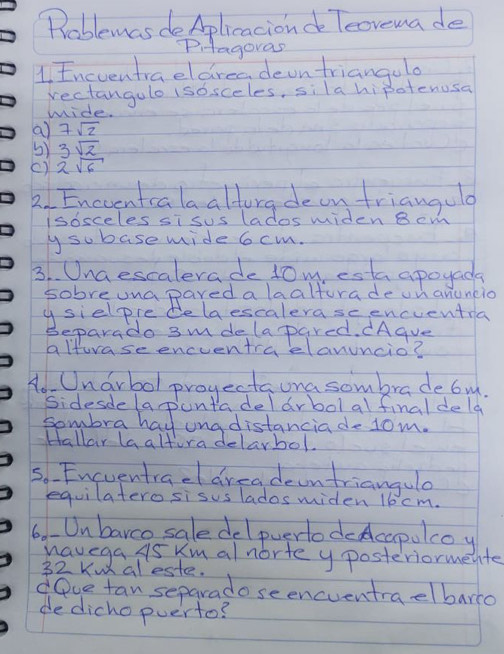 Problemas de Aplicación de Teorema de
Pitagoras
1. Encuentra el área de un triangulo
rectangulo isósceles. si la hipotenusa
mide.
a) 7√2
b) 3√2
c) 2√6
2.- Encuentra la altura de un triangulo
isósceles si sus lados miden 8 cm
y su base mide 6 cm.
3.- Una escalera de 10 m. esta apoyada
sobre una pared a la altura de un anuncio
y si el pie de la escalera se encuentra
separado 3 m de la pared. ¿A que
altura se encuentra el anuncio?
4.- Un árbol proyecta una sombra de 6m.
Si desde la punta del árbol al final de la
sombra hay una distancia de 10 m.
Hallar la altura del arbol.
5.- Encuentra el área de un triangulo
equilatero si sus lados miden 16 cm.
6.- Un barco sale del puerto de Acapulco y
navega 45 Km al norte y posteriormente
32 Km al este.
¿Que tan separado se encuentra el barco
de dicho puerto?